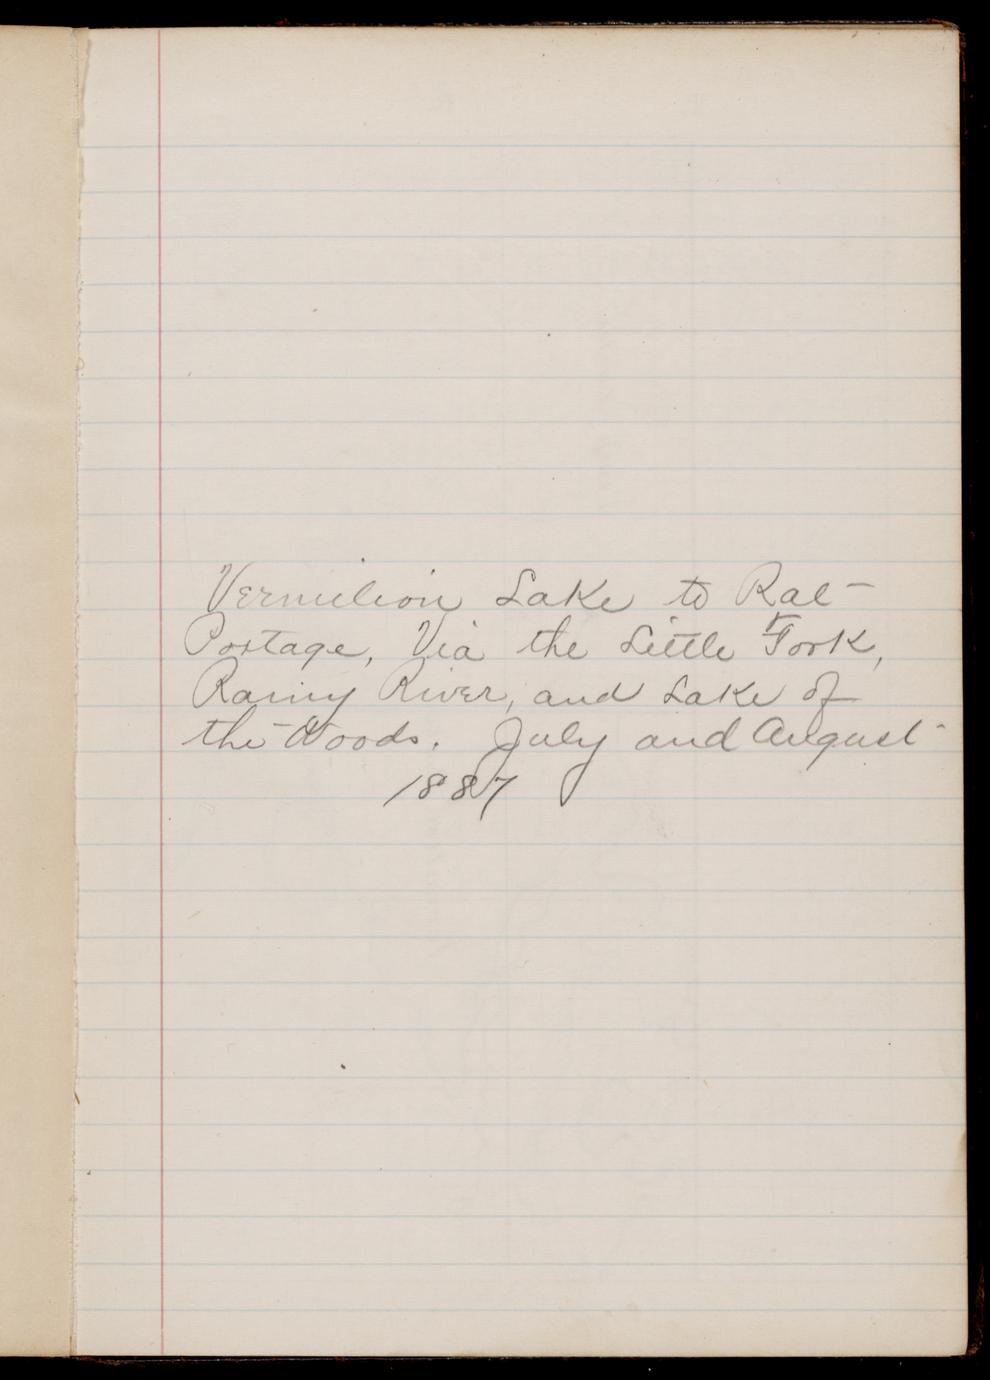 Vermilion Lake to Rat
Portage, Via the Little Fork,
Rainy River, and Lake of
the Woods. July and August
1887